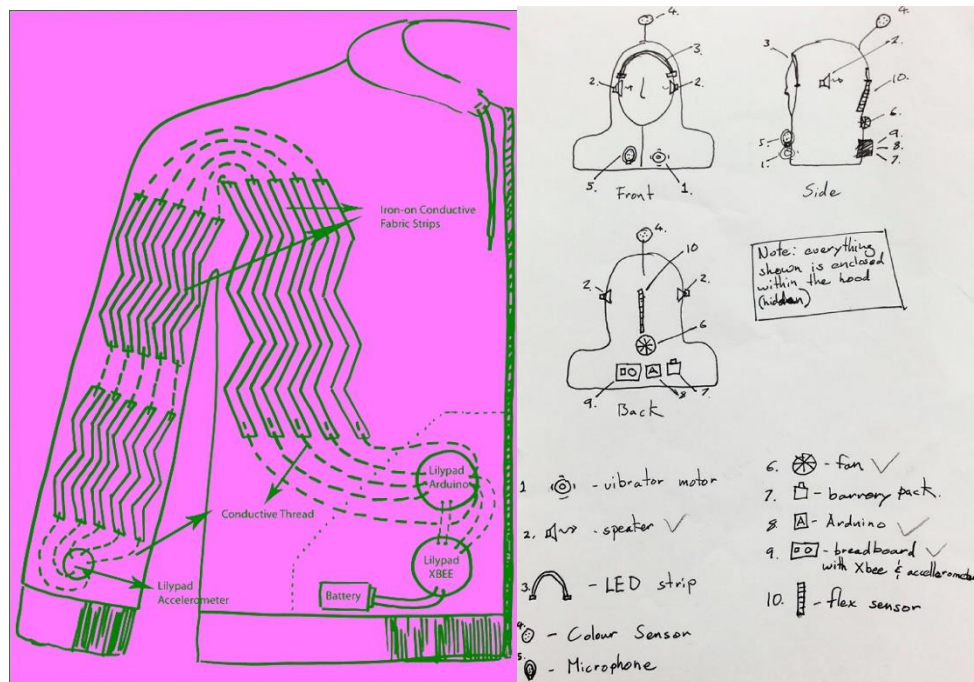 Iron-on Conductive
Fabric Strips
Lilypad
Arduino
Conductive Thread
Lilypad
XBEE
Lilypad
Accelerometer
Battery
4.
3.
2.
2.
5.
1.
Front
4.
3
2.
10.
6.
9.
8.
7.
5.
1.
Side
4.
10
2.
2.
6
9.
8
7.
Back
Note: everything
shown is enclosed
within the hood
(hidden)
1 - vibrator motor
2. - speaker ✓
3. - LED strip
4. - Colour Sensor
5. - Microphone
6. - fan ✓
7. - barrery pack.
8. A - Arduino ✓
9. - breadboard ✓
with Xbee & accellerometer
10. - flex sensor